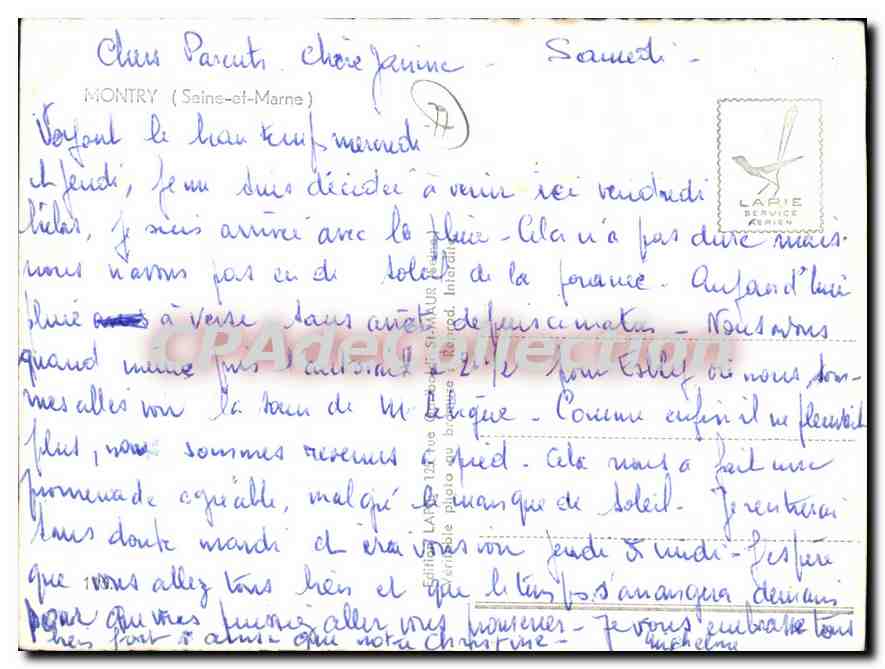 Chers Parents. Chère Janine - Samedi -
MONTRY (Seine-et-Marne)
77
Voyant le beau temps mercredi
et jeudi, je me suis décidée à venir ici vendredi
hélas, je suis arrivée avec la pluie - Cela n'a pas duré mais
nous n'avons pas eu de soleil de la journée - Aujourd'hui
pluie à verse sans arrêt depuis ce matin - Nous avons
quand même pris l'autobus à 2h1/2 pour Esbly, où nous som-
mes allés voir la sœur de Mr - Comme enfin il ne pleuvait
plus, nous sommes revenus à pied - Cela nous a fait une
promenade agréable, malgré le manque de soleil. Je rentrerai
sans doute mardi et irai vous voir jeudi midi - J'espère
que vous allez tous bien et que le temps s'arrangera demain
pour que vous puissiez aller vous promener - Je vous embrasse tous
bien fort ainsi que notre Christine - Micheline
LAPIE
SERVICE
AÉRIEN
Edition LAPIE St-MAUR (Seine)
Véritable photo au bromure : Reprod. Interdite
CPAdeCollection